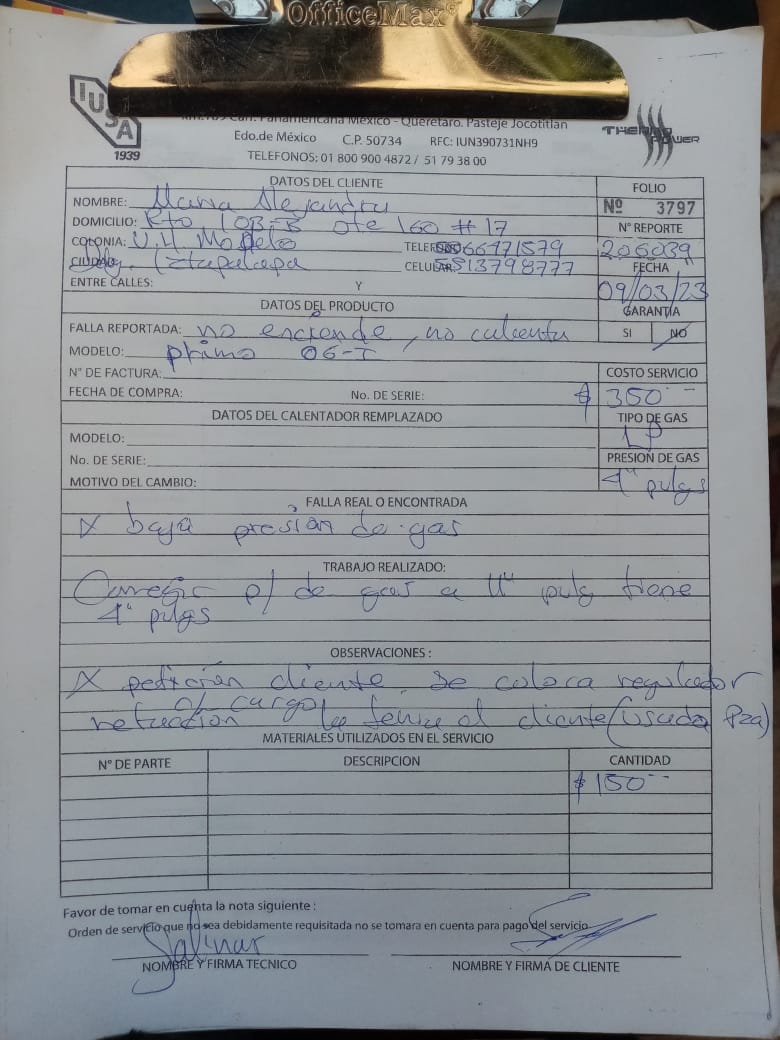 OfficeMax
IUSA
1939
Carr. Panamericana México - Querétaro. Pasteje Jocotitlan
Edo.de México C.P. 50734 RFC: IUN390731NH9
TELEFONOS; 01 800 900 4872 / 51 79 38 00
THERMO POWER
DATOS DEL CLIENTE
FOLIO
NOMBRE: Maria Alejandra
Nº 3797
DOMICILIO: Rto 103-B ote 160 # 17
N° REPORTE
COLONIA: U.H. Modelo TELEFONO 66171579
206039
CIUDAD: Iztapalapa CELULAR: 5513798777
FECHA
ENTRE CALLES: Y
09/03/23
DATOS DEL PRODUCTO
GARANTÍA
FALLA REPORTADA: no enciende, no calienta
SI NO
MODELO: primo 06-I
N° DE FACTURA:
COSTO SERVICIO
FECHA DE COMPRA: No. DE SERIE:
$ 350
DATOS DEL CALENTADOR REMPLAZADO
TIPO DE GAS
MODELO:
LP
No. DE SERIE:
PRESIÓN DE GAS
MOTIVO DEL CAMBIO:
4" pulgs
FALLA REAL O ENCONTRADA
X baja presión de gas
TRABAJO REALIZADO:
Corregir p/ de gas a 11" pulg tiene
4" pulgs
OBSERVACIONES :
X petición cliente se coloca regulador
c/ cargo
refacción la tenia el cliente (usada Pza)
MATERIALES UTILIZADOS EN EL SERVICIO
N° DE PARTE DESCRIPCION CANTIDAD
$ 150
Favor de tomar en cuenta la nota siguiente :
Orden de servicio que no sea debidamente requisitada no se tomara en cuenta para pago del servicio
Salinas
NOMBRE Y FIRMA TECNICO NOMBRE Y FIRMA DE CLIENTE